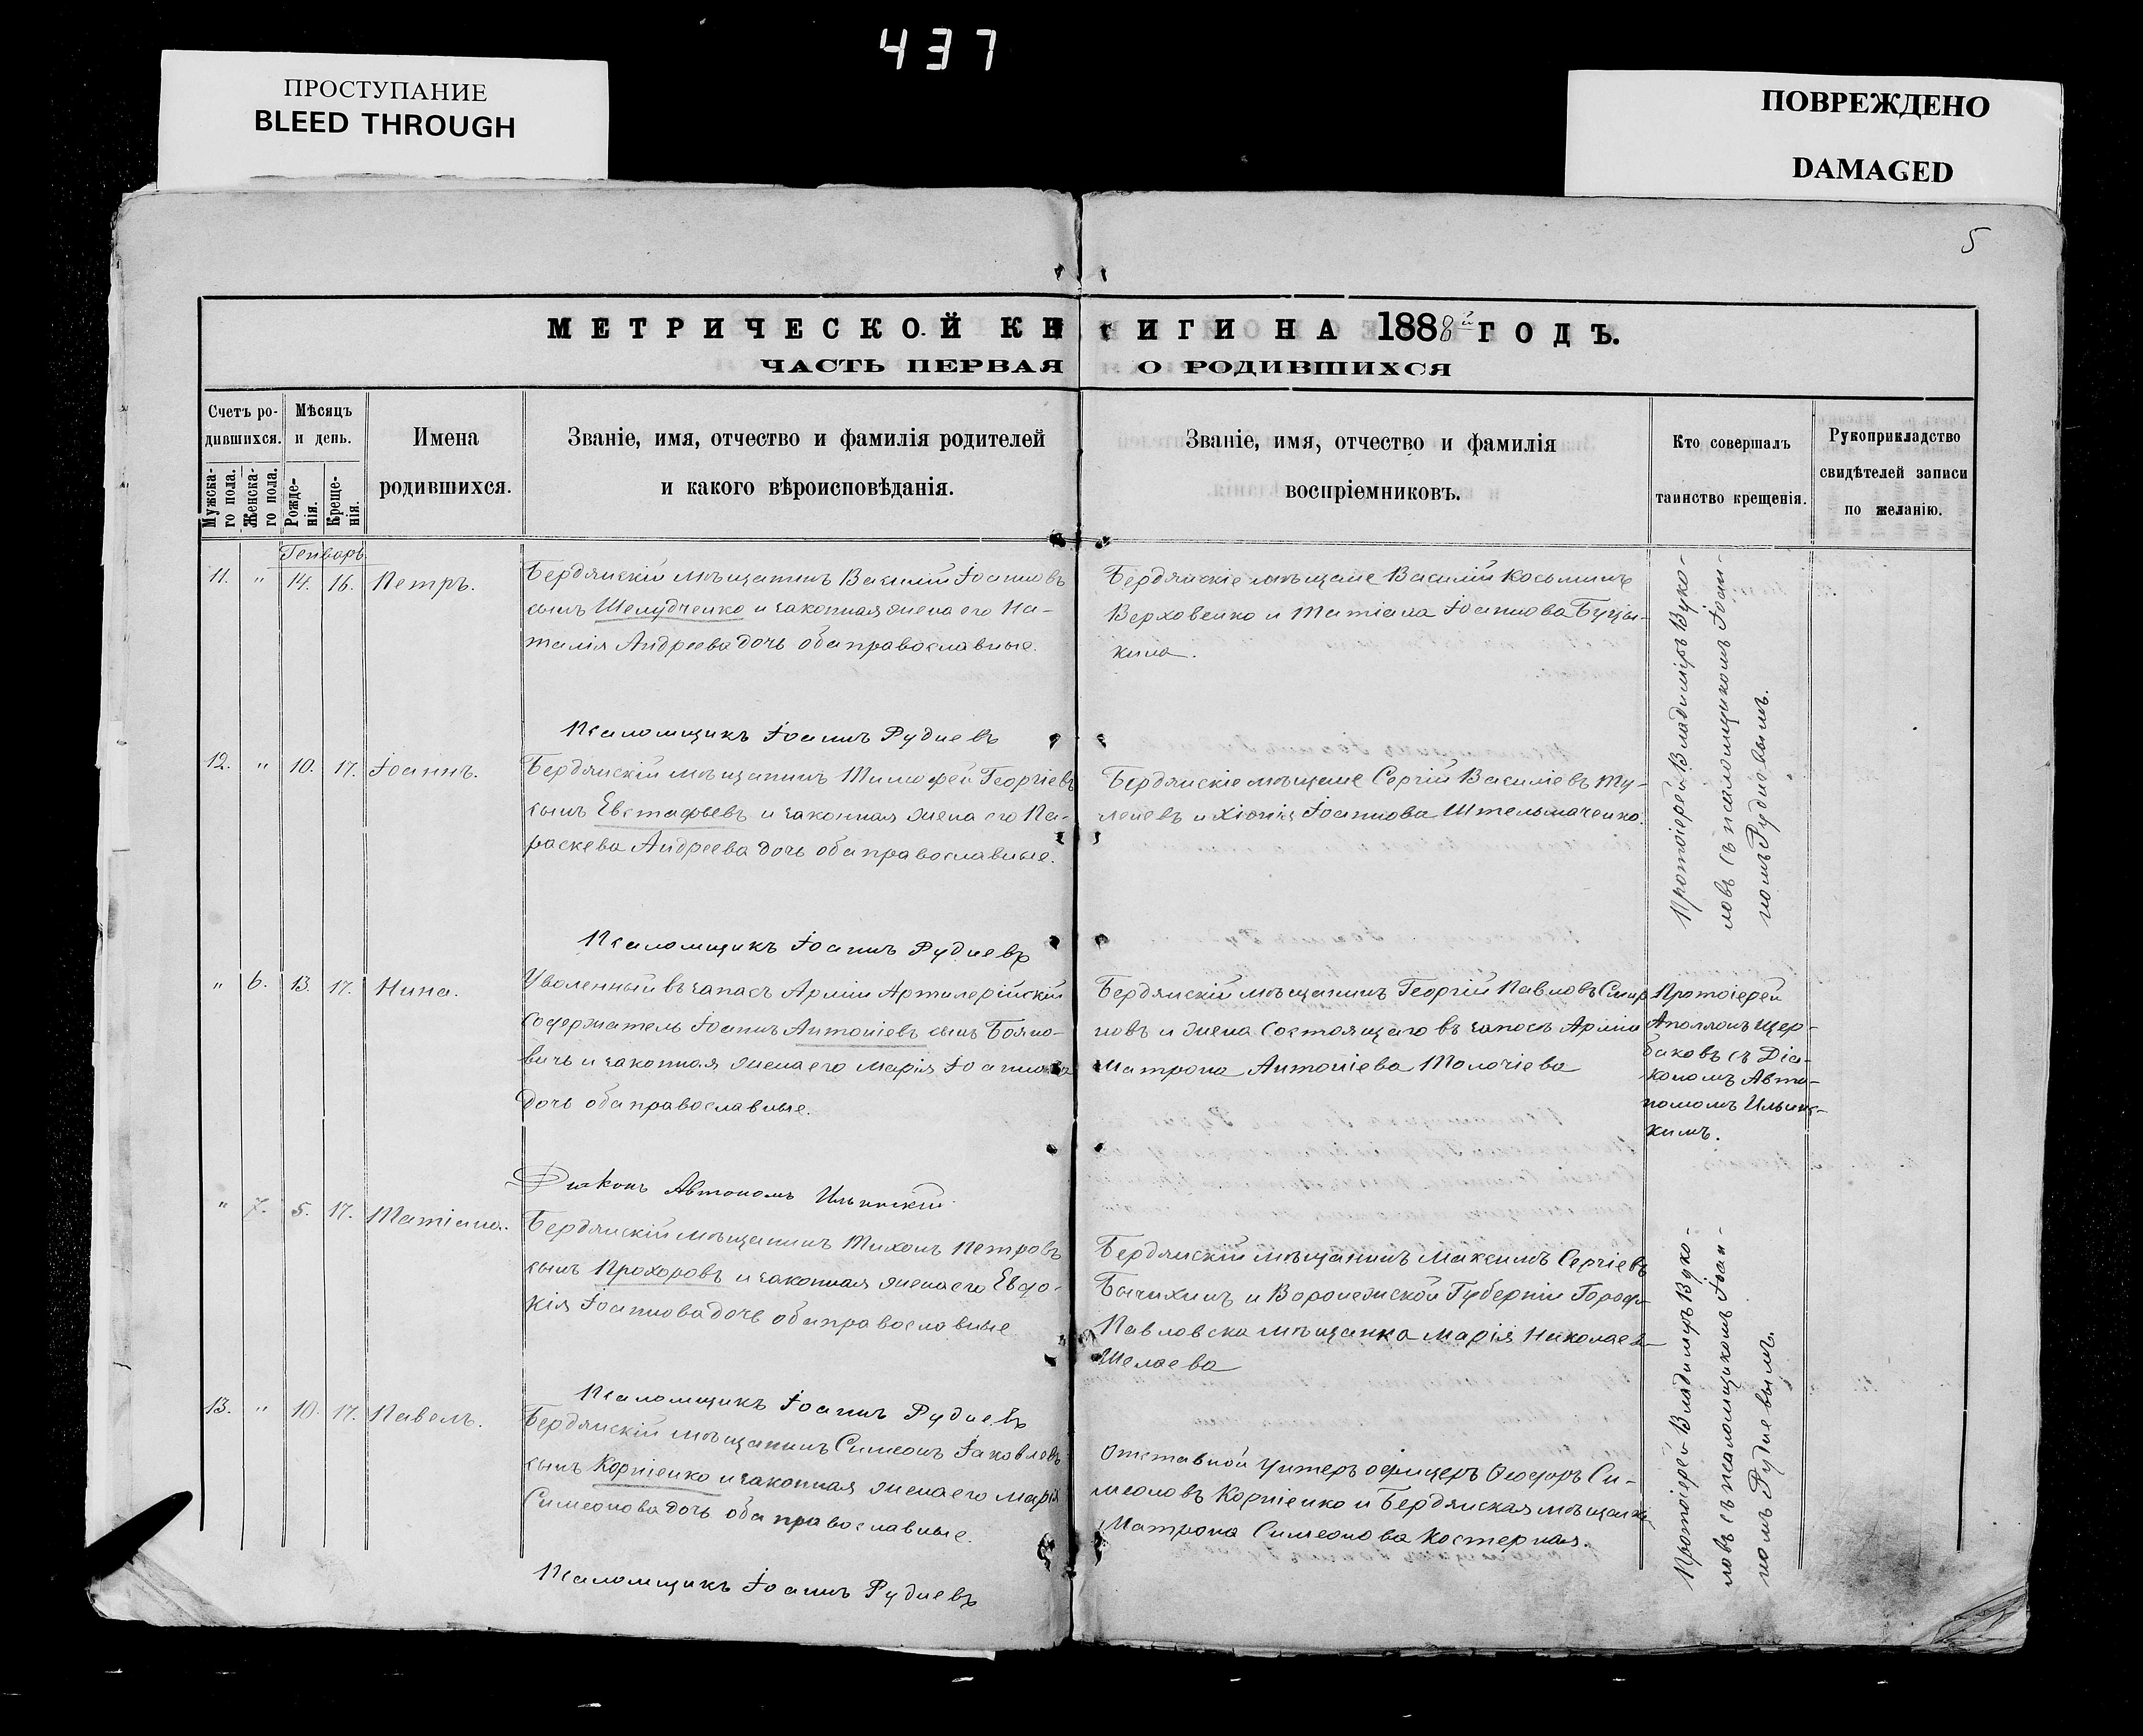 437
ПРОСТУПАНИЕ
BLEED THROUGH
ПОВРЕЖДЕНО
DAMAGED
5
МЕТРИЧЕСКОЙ КНИГИ НА 1888й ГОДЪ.
ЧАСТЬ ПЕРВАЯ О РОДИВШИХСЯ
Счетъ ро-
дившихся.
Мужска-
го пола.
Женска-
го пола.
Мѣсяцъ
и день.
Рожде-
нія.
Креще-
нія.
Имена
родившихся.
Званіе, имя, отчество и фамилія родителей
и какого вѣроисповѣданія.
Званіе, имя, отчество и фамилія
воспріемниковъ.
Кто совершалъ
таинство крещенія.
Рукоприкладство
свидѣтелей записи
по желанію.
Генварь
11. " 14. 16. Петръ.
Бердянскій мѣщанинъ Василій Іоанновъ
сынъ Шелудченко и законная жена его На-
талія Андреева дочь оба православные.
Бердянскіе мѣщане Василій Косьминъ
Верховенко и Татіана Іоаннова Буцы-
кина.
Протоіерей Владиміръ Вуко-
ловъ съ псаломщикомъ Іоан-
номъ Рудневымъ.
Псаломщикъ Іоаннъ Рудневъ
12. " 10. 17. Іоаннъ.
Бердянскій мѣщанинъ Тимофей Георгіевъ
сынъ Евстафьевъ и законная жена его Па-
раскева Андреева дочь оба православные.
Бердянскіе мѣщане Сергій Василіевъ Ту-
леневъ и Хіонія Іоаннова Штельмаченко.
Псаломщикъ Іоаннъ Рудневъ
" 6. 13. 17. Нина.
Уволенный въ запасъ Арміи Артилерійскій
содержатель Іоаннъ Антоніевъ сынъ Бояно-
вичъ и законная жена его Марія Іоаннова
дочь оба православные.
Бердянскій мѣщанинъ Георгій Павловъ Смир
новъ и жена состоящаго въ запасѣ Арміи
Матрона Антоніева Толочіева
Протоіерей
Аполлонъ Щер-
баковъ съ Діа-
кономъ Авто-
номомъ Ильин-
кимъ.
Діаконъ Автономъ Ильинскій
" 7. 5. 17. Татіана.
Бердянскій мѣщанинъ Тихонъ Петровъ
сынъ Прохоровъ и законная жена его Евдо-
кія Іоаннова дочь оба православные
Бердянскій мѣщанинъ Максимъ Сергіевъ
Бычихинъ и Воронежской Губерніи Города
Павловска мѣщанка Марія Николаев-
Шелаева
Протоіерей Владиміръ Вуко-
ловъ съ псаломщикомъ Іоан-
номъ Рудневымъ.
Псаломщикъ Іоаннъ Рудневъ
13. " 10. 17. Павелъ.
Бердянскій мѣщанинъ Симеонъ Іаковлевъ
сынъ Корніенко и законная жена его Марія
Симеонова дочь оба православные.
Отставной унтеръ офицеръ Ѳеодоръ Си-
меоновъ Корніенко и Бердянская мѣщанка
Матрона Симеонова Костерная.
Псаломщикъ Іоаннъ Рудневъ